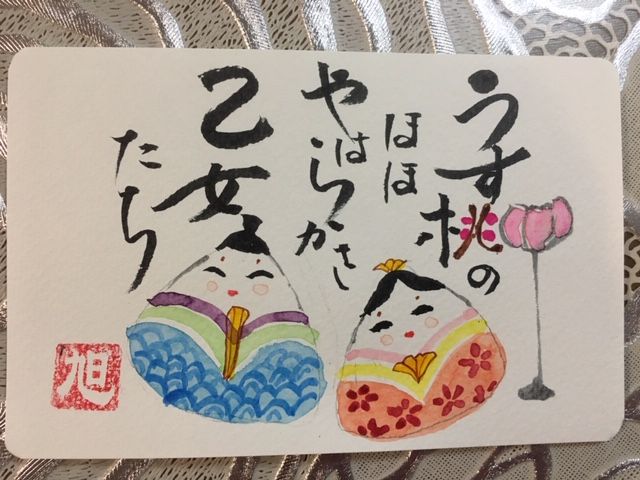 うす桃の
ほほ
やはらかきし
乙女
たち
旭